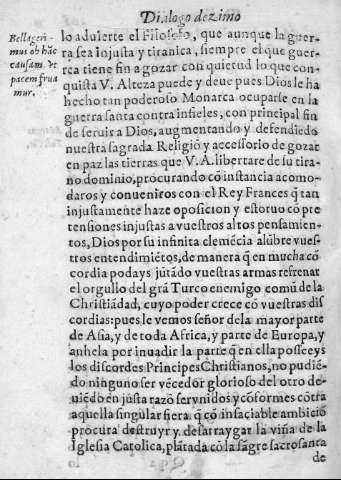 Dialogo dezimo
Bella geri-
mus ob hãc
causam. vt
pacem frua
mur.
lo aduierte el Filosofo, que aunque la guer-
ra sea injusta y tiranica, siempre el que guer-
rea tiene fin a gozar con quietud lo que con-
quista V. Alteza puede y deue pues Dios le ha
hecho tan poderoso Monarca ocuparse en la
guerra santa contra infieles, con principal fin
de seruir a Dios, augmentando y defendiẽdo
nuestra sagrada Religiõ y accessorio de gozar
en paz las tierras que V. A. libertare de su tira-
no dominio, procurando cõ instancia acomo-
daros y conueniros con el Rey Frances q̃ tan
injustamente haze oposicion y estoruo cõ pre
tensiones injustas a vuestros altos pensamien-
tos, Dios por su infinita clemẽcia alũbre vues-
tros entendimiẽtos, de manera q̃ en mucha cõ
cordia podays jũtãdo vuestras armas refrenar
el orgullo del grã Turco enemigo comũ de la
Christiãdad, cuyo poder crece cõ vuestras dis
cordias: pues le vemos señor de la mayor parte
de Asia, y de toda Africa, y parte de Europa, y
anhela por inuadir la parte q̃ en ella posseeys
los discordes Principes Christianos, no pudiẽ-
do ninguno ser vẽcedor glorioso del otro de-
uiẽdo en justa razõ ser vnidos y cõformes cõtra
aquella singular fiera q̃ cõ insaciable ambiciõ
procura destruyr y desarraygar la viña de la
Iglesia Catolica, plãtada cõ la sãgre sacrosanta
de